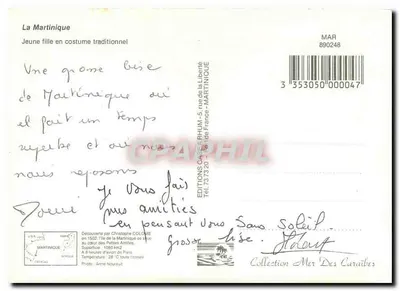 La Martinique
Jeune fille en costume traditionnel
MAR
890248
3 353050 000047
Une grosse bise
de Martinique où
il fait un temps
superbe et où nous
nous reposons
je vous fais
mes amitiés
en pensant vous sans soleil.
Grosse bise.
Découverte par Christophe COLOMB
en 1502, l'île de la Martinique
au cœur des Petites Antilles.
Superficie : 1080 km2
A 8 heures d'avion de Paris
Température : 26° C toute l'année
MARTINIQUE
EDITIONS
5, rue de la Liberté
Tél. 73.73.20
Fort de France - MARTINIQUE
CPAPHIL
Collection Mer Des Caraïbes